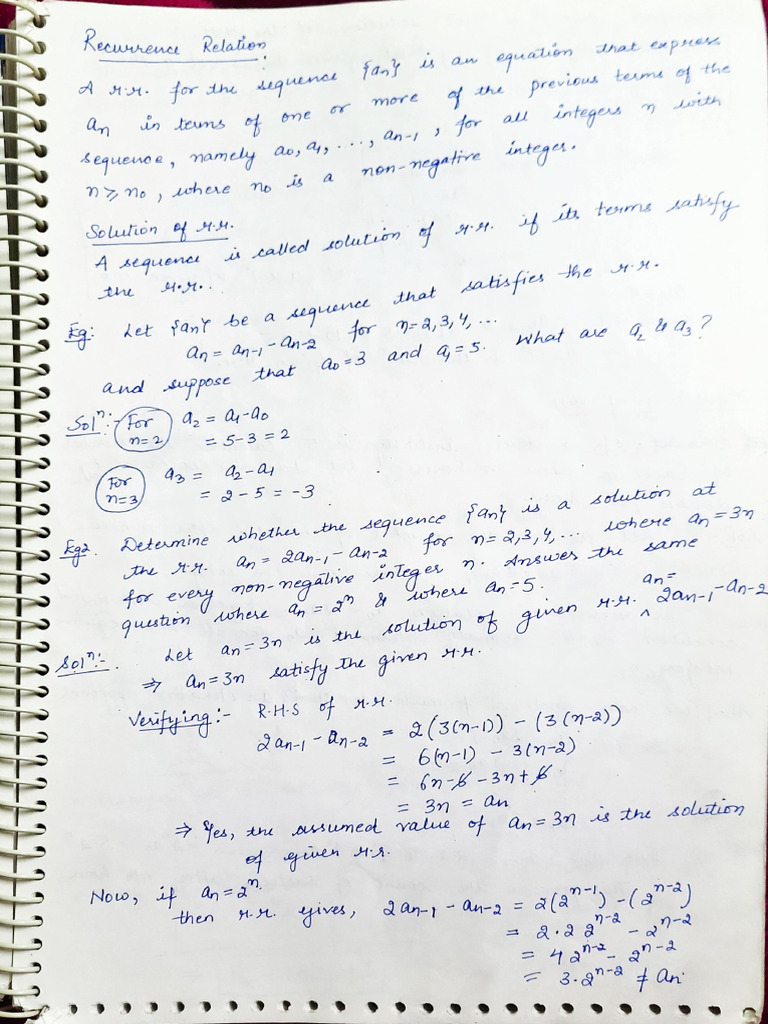 Recurrence Relation:
A r.r. for the sequence {an} is an equation that express
an in terms of one or more of the previous terms of the
sequence, namely a0, a1, ..., an-1, for all integers n with
n ≥ n0, where n0 is a non-negative integer.
Solution of r.r.
A sequence is called solution of r.r. if its terms satisfy
the r.r..
Eg: Let {an} be a sequence that satisfies the r.r.
an = an-1 - an-2 for n=2,3,4,...
and suppose that a0=3 and a1=5. What are a2 & a3?
Solⁿ:- For n=2 a2 = a1-a0
= 5-3 = 2
For n=3 a3 = a2-a1
= 2-5 = -3
Eg2. Determine whether the sequence {an} is a solution at
the r.r. an = 2an-1 - an-2 for n=2,3,4,... where an=3n
for every non-negative integer n. Answer the same
question where an = 2ⁿ & where an=5.
Solⁿ:- Let an=3n is the solution of given r.r. an= 2an-1-an-2
⇒ an=3n satisfy the given r.r.
Verifying:- R.H.S of r.r.
2an-1 - an-2 = 2(3(n-1)) - (3(n-2))
= 6(n-1) - 3(n-2)
= 6n-6-3n+6
= 3n = an
⇒ Yes, the assumed value of an=3n is the solution
of given r.r.
Now, if an=2ⁿ.
then r.r. gives, 2an-1 - an-2 = 2(2ⁿ⁻¹) - (2ⁿ⁻²)
= 2.2 2ⁿ⁻² - 2ⁿ⁻²
= 4 2ⁿ⁻² - 2ⁿ⁻²
= 3.2ⁿ⁻² ≠ an.